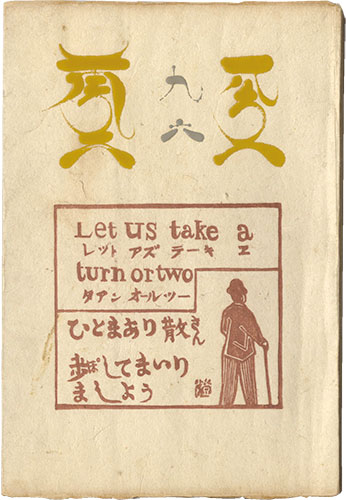 九六
Let us take a
レット アズ テーキ ヱ
turn or two
タアン オールツー
ひとまあり散さん
歩ぽしてまいり
ましよう